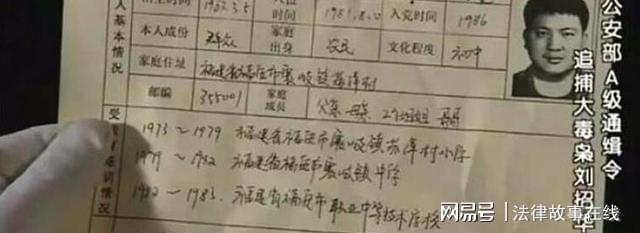 时间
1981.8.
入党时间
1986
本人成份
群众
家庭出身
农民
文化程度
初中
人基本情况
家庭住址
福建省福安市赛岐镇苏洋村
邮编
355001
家庭成员
父亲 母亲
1973～1979 福建省福安市赛岐镇苏洋村小学
1979～1982 福建省福安市赛岐镇中学
1982～1983 福建省福安市职业中等技术学校
公安部A级通缉令
追捕大毒枭刘招华
网易号 | 法律故事在线